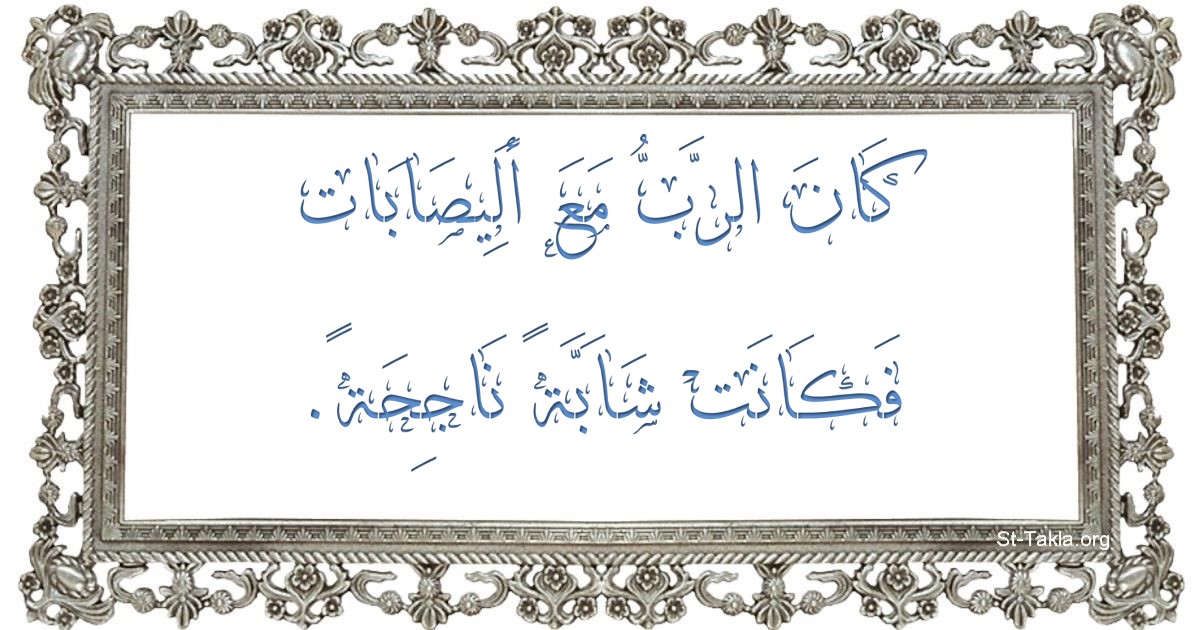 كَانَ الرَّبُّ مَعَ أَلِيصَابَات
فَكَانَتْ شَابَّةً نَاجِحَةً.
St-Takla.org